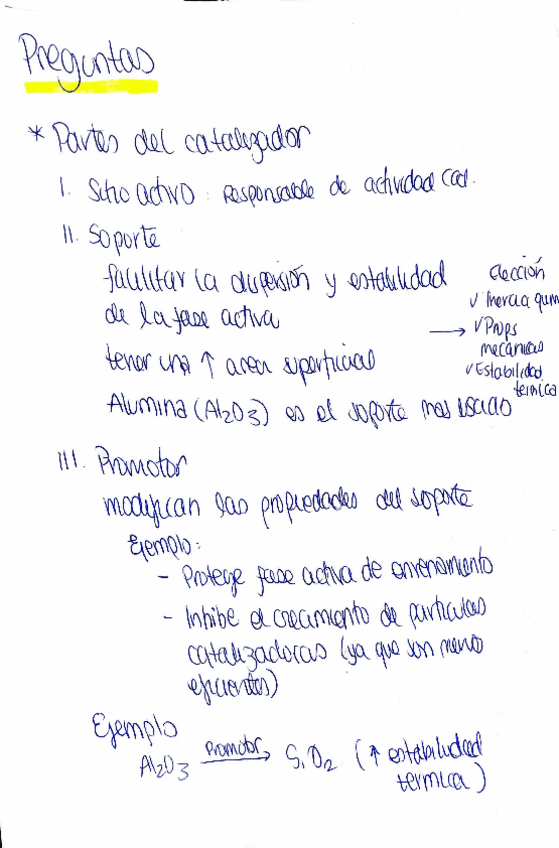 Preguntas
* Partes del catalizador
I. Sitio activo : Responsable de actividad cat.
II. Soporte
facilitar la dispersión y estabilidad
de la fase activa
tener una ↑ area superficial
Alumina (Al2O3) es el soporte mas usado
→
Elección
✓ Inercia quim
✓ Props
mecánicas
✓ Estabilidad
termica
III. Promotor
modifican las propiedades del soporte
Ejemplo:
- Protege fase activa de envenamiento
- Inhibe el crecimiento de particulas
catalizadoras (ya que son menos
eficientes)
Ejemplo
Al2O3 Promotor → SiO2 (↑ estabilidad
termica)